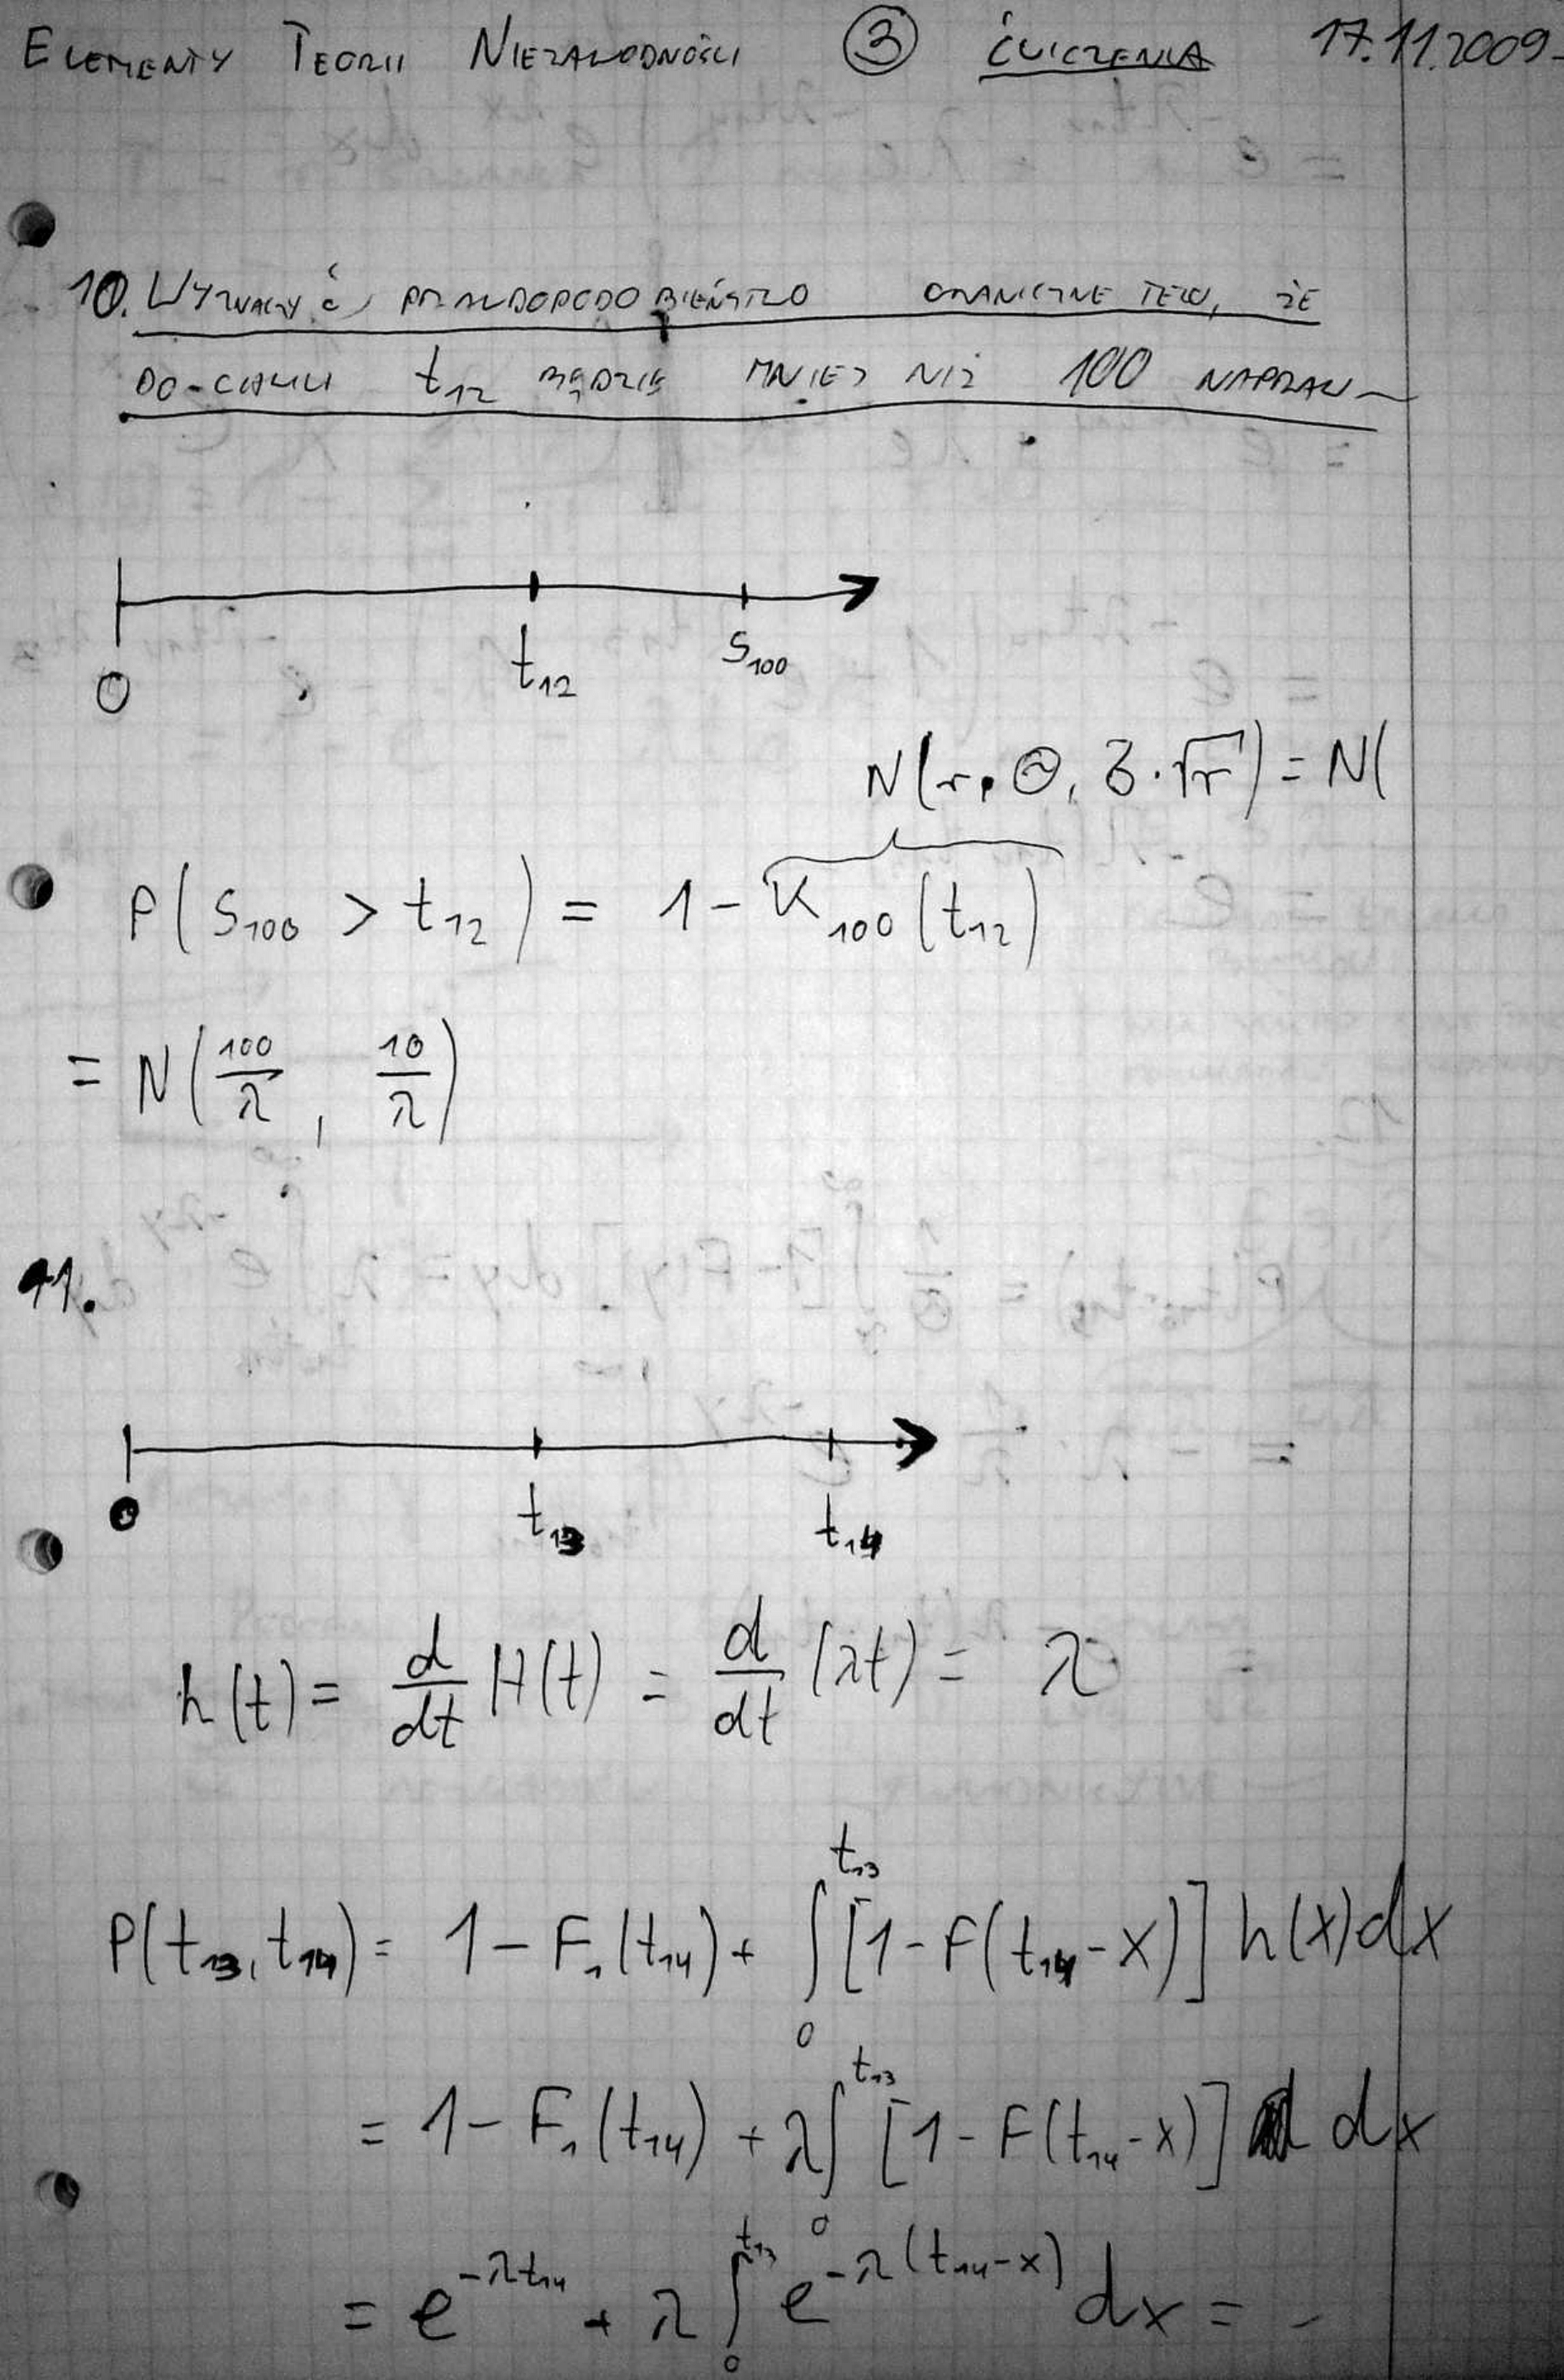 ELEMENTY TEORII NIEZAWODNOŚCI ③ ĆWICZENIA 17.11.2009
10. WYZNACZYĆ PRAWDOPODOBIEŃSTWO GRANICZNE TEGO, ŻE
DO CHWILI t₁₂ BĘDZIE MNIEJ NIŻ 100 NAPRAW
0 t₁₂ S₁₀₀
N(r·Θ, б·√r) = N(
P(S₁₀₀ > t₁₂) = 1 - K₁₀₀(t₁₂)
= N(100/λ, 10/λ)
11.
0 t₁₃ t₁₄
h(t) = d/dt H(t) = d/dt (λt) = λ
P(t₁₃, t₁₄) = 1 - F₁(t₁₄) + ∫₀^t₁₃ [1 - F(t₁₄ - x)] h(x)dx
= 1 - F₁(t₁₄) + λ∫₀^t₁₃ [1 - F(t₁₄ - x)] dx
= e^(-λt₁₄) + λ∫₀^t₁₃ e^(-λ(t₁₄ - x)) dx =